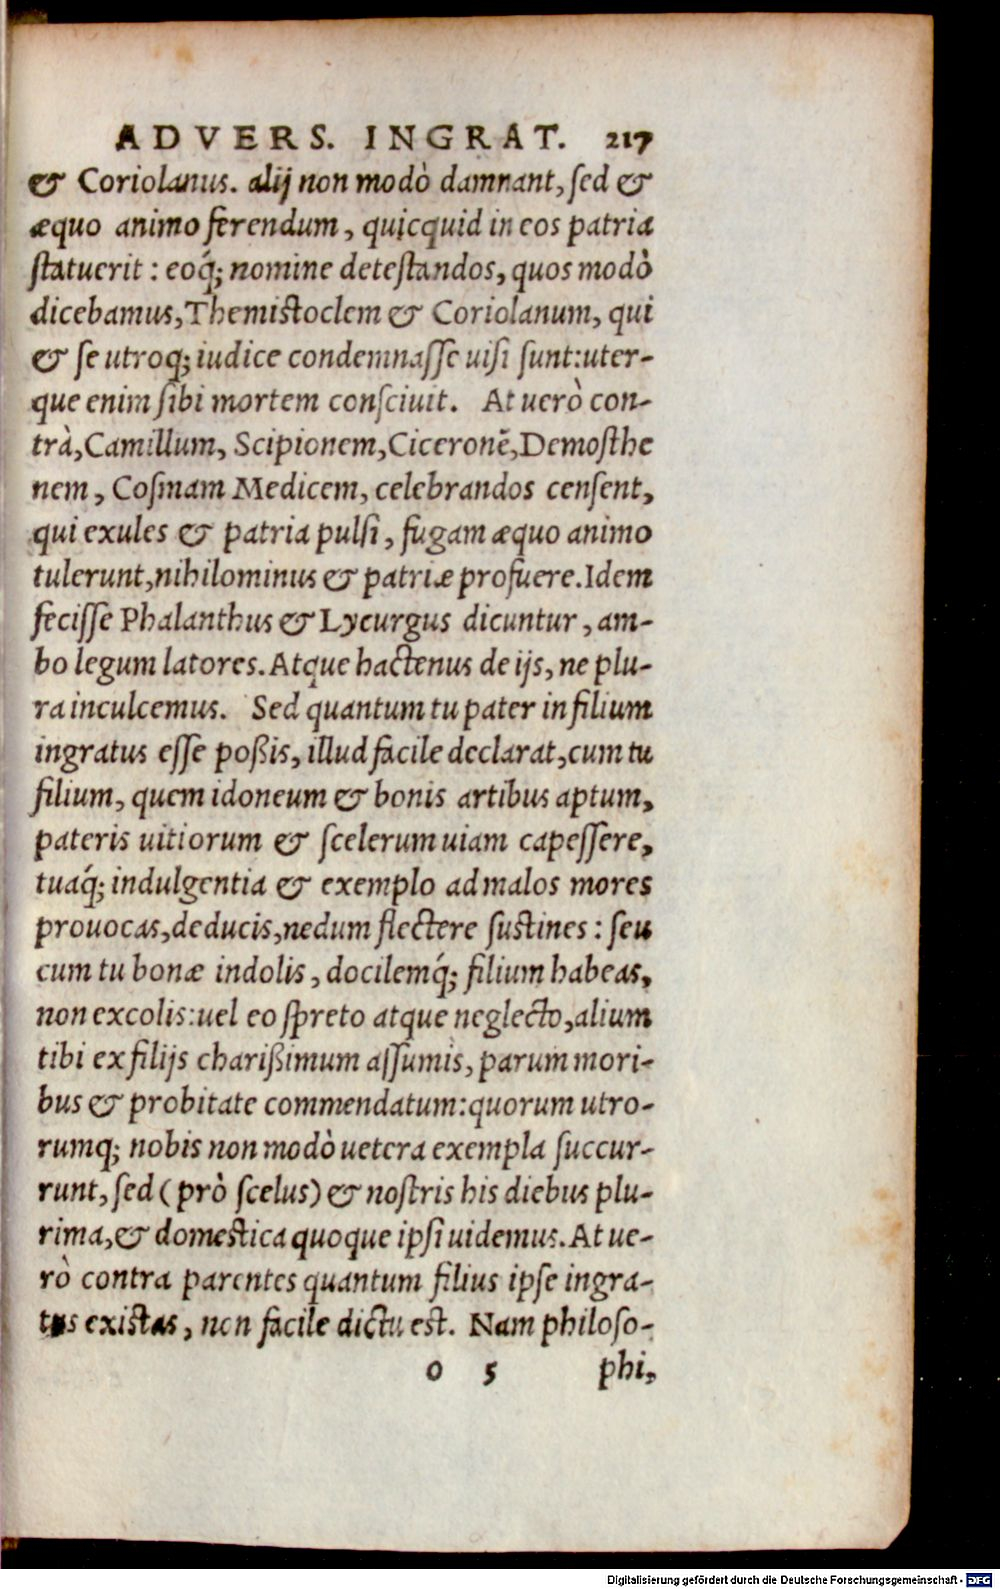 ADVERS. INGRAT. 217
& Coriolanus. alij non modò damnant, ſed &
æquo animo ferendum, quicquid in eos patria
ſtatuerit: eoq́; nomine deteſtandos, quos modò
dicebamus, Themiſtoclem & Coriolanum, qui
& ſe utroq; iudice condemnaſſe uiſi ſunt: uter-
que enim ſibi mortem conſciuit. At uerò con-
trà, Camillum, Scipionem, Ciceronē, Demoſthe
nem, Coſmam Medicem, celebrandos cenſent,
qui exules & patria pulſi, fugam æquo animo
tulerunt, nihilominus & patriæ profuere. Idem
feciſſe Phalanthus & Lycurgus dicuntur, am-
bo legum latores. Atque hactenus de ijs, ne plu-
ra inculcemus. Sed quantum tu pater in filium
ingratus eſſe poßis, illud facile declarat, cum tu
filium, quem idoneum & bonis artibus aptum,
pateris uitiorum & ſcelerum uiam capeſſere,
tuaq́; indulgentia & exemplo ad malos mores
prouocas, deducis, nedum flectere ſuſtines: ſeu
cum tu bonæ indolis, docilemq́; filium habeas,
non excolis: uel eo ſpreto atque neglecto, alium
tibi ex filijs charißimum aſſumis, parum mori-
bus & probitate commendatum: quorum utro-
rumq; nobis non modò uetera exempla ſuccur-
runt, ſed (prò ſcelus) & noſtris his diebus plu-
rima, & domeſtica quoque ipſi uidemus. At ue-
rò contra parentes quantum filius ipſe ingra-
tus exiſtas, non facile dictu eſt. Nam philoſo-
o 5 phi,
Digitalisierung gefördert durch die Deutsche Forschungsgemeinschaft - DFG